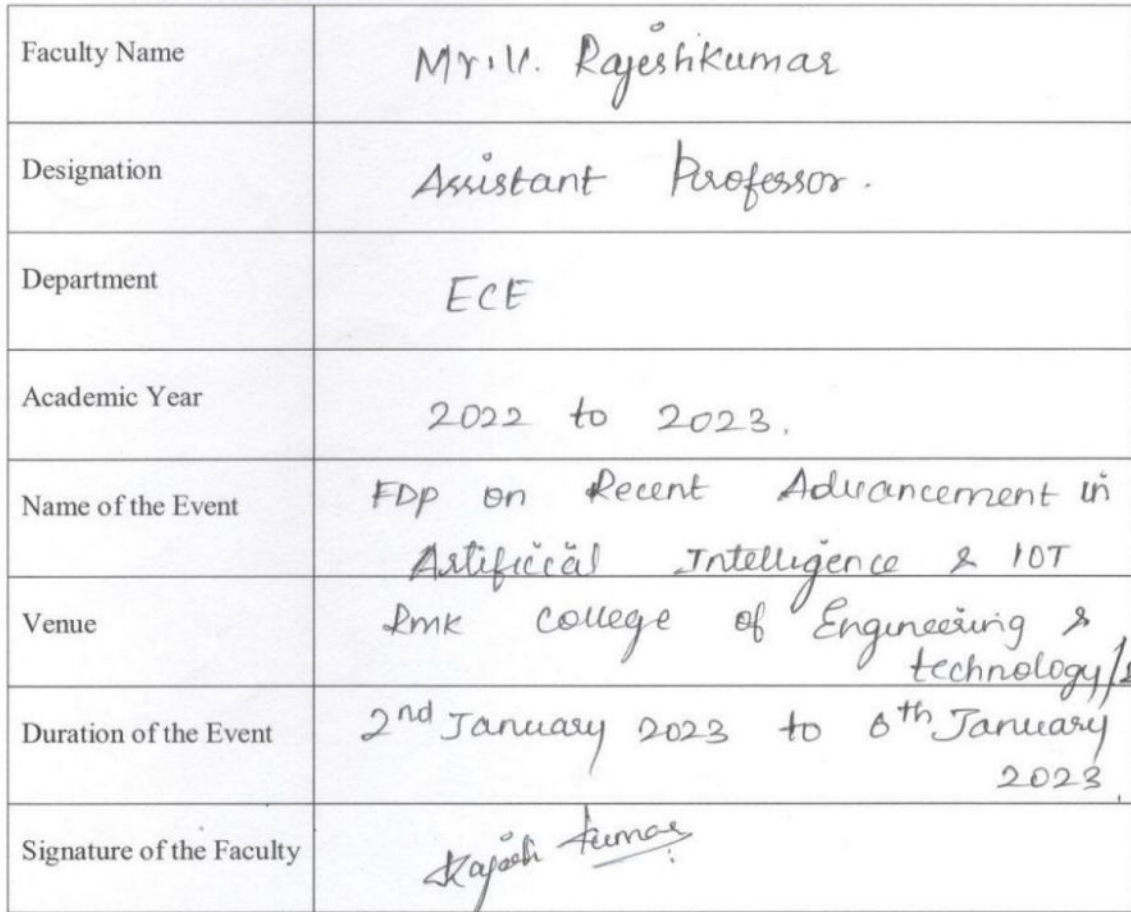 Faculty Name
Mr.V. Rajeshkumar
Designation
Assistant Professor.
Department
ECE
Academic Year
2022 to 2023.
Name of the Event
FDP on Recent Advancement in
Artificial Intelligence & IOT
Venue
RMK College of Engineering &
technology/
Duration of the Event
2nd January 2023 to 6th January
2023
Signature of the Faculty
Rajesh kumar